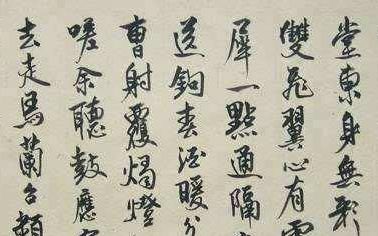 堂東身無彩
雙飛翼心有靈
犀一點通隔
送鉤春酒暖分
曹射覆燭燈
嗟余聽鼓應官
去走馬蘭台類